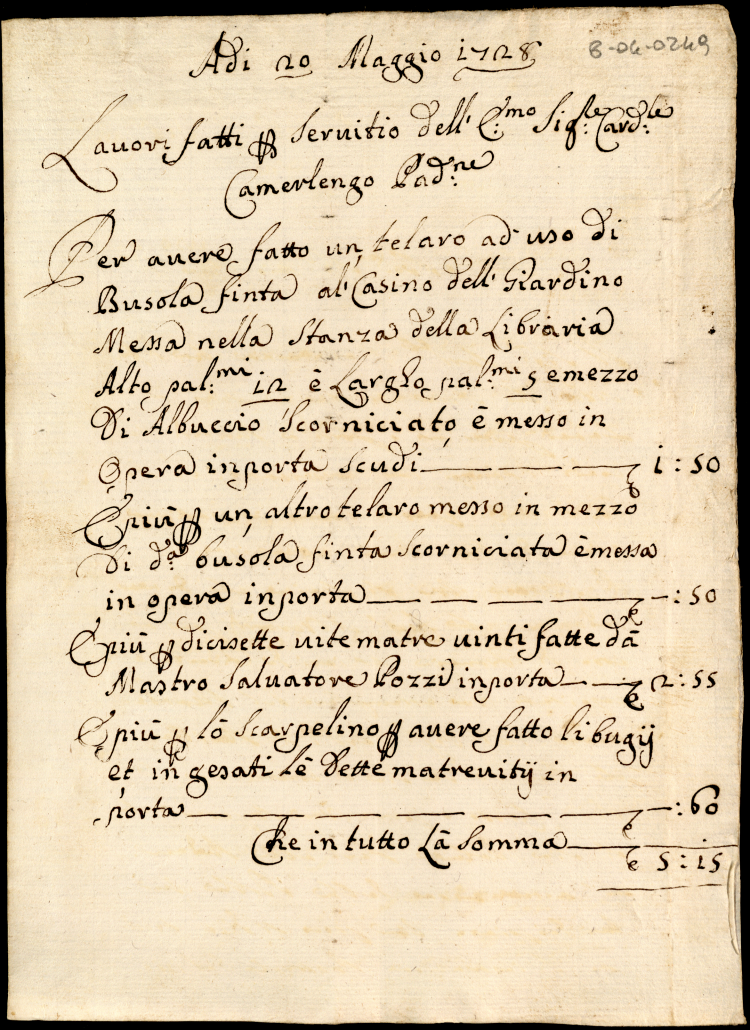 Adi 20 Maggio 1728
B-04-0249
Lavori fatti per servitio dell' E:mo Sig:re Card:le
Camerlengo Pad:ne
Per avere fatto un telaro ad uso di
Busola finta al Casino dell' Giardino
Messa nella Stanza della Libraria
Alto pal:mi 12 è Largho pal:mi 5 e mezzo
Di Albuccio Scorniciato è messo in
Opera inporta scudi 1:50
E più per un altro telaro messo in mezzo
Di d:a busola finta scorniciata è messa
in opera inporta -:50
E più per dicisette vite matre vinti fatte dà
Mastro Salvatore Pozzi inporta 2:55
E più per lò Scarpelino per avere fatto li bugij
et in gesati lè dette matrevitij in
porta -:60
Che in tutto Là somma 5:15